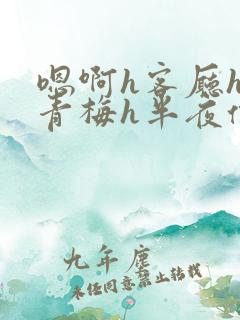 嗯啊h客厅h
青梅h半夜
九年尘
未经同意禁止转载